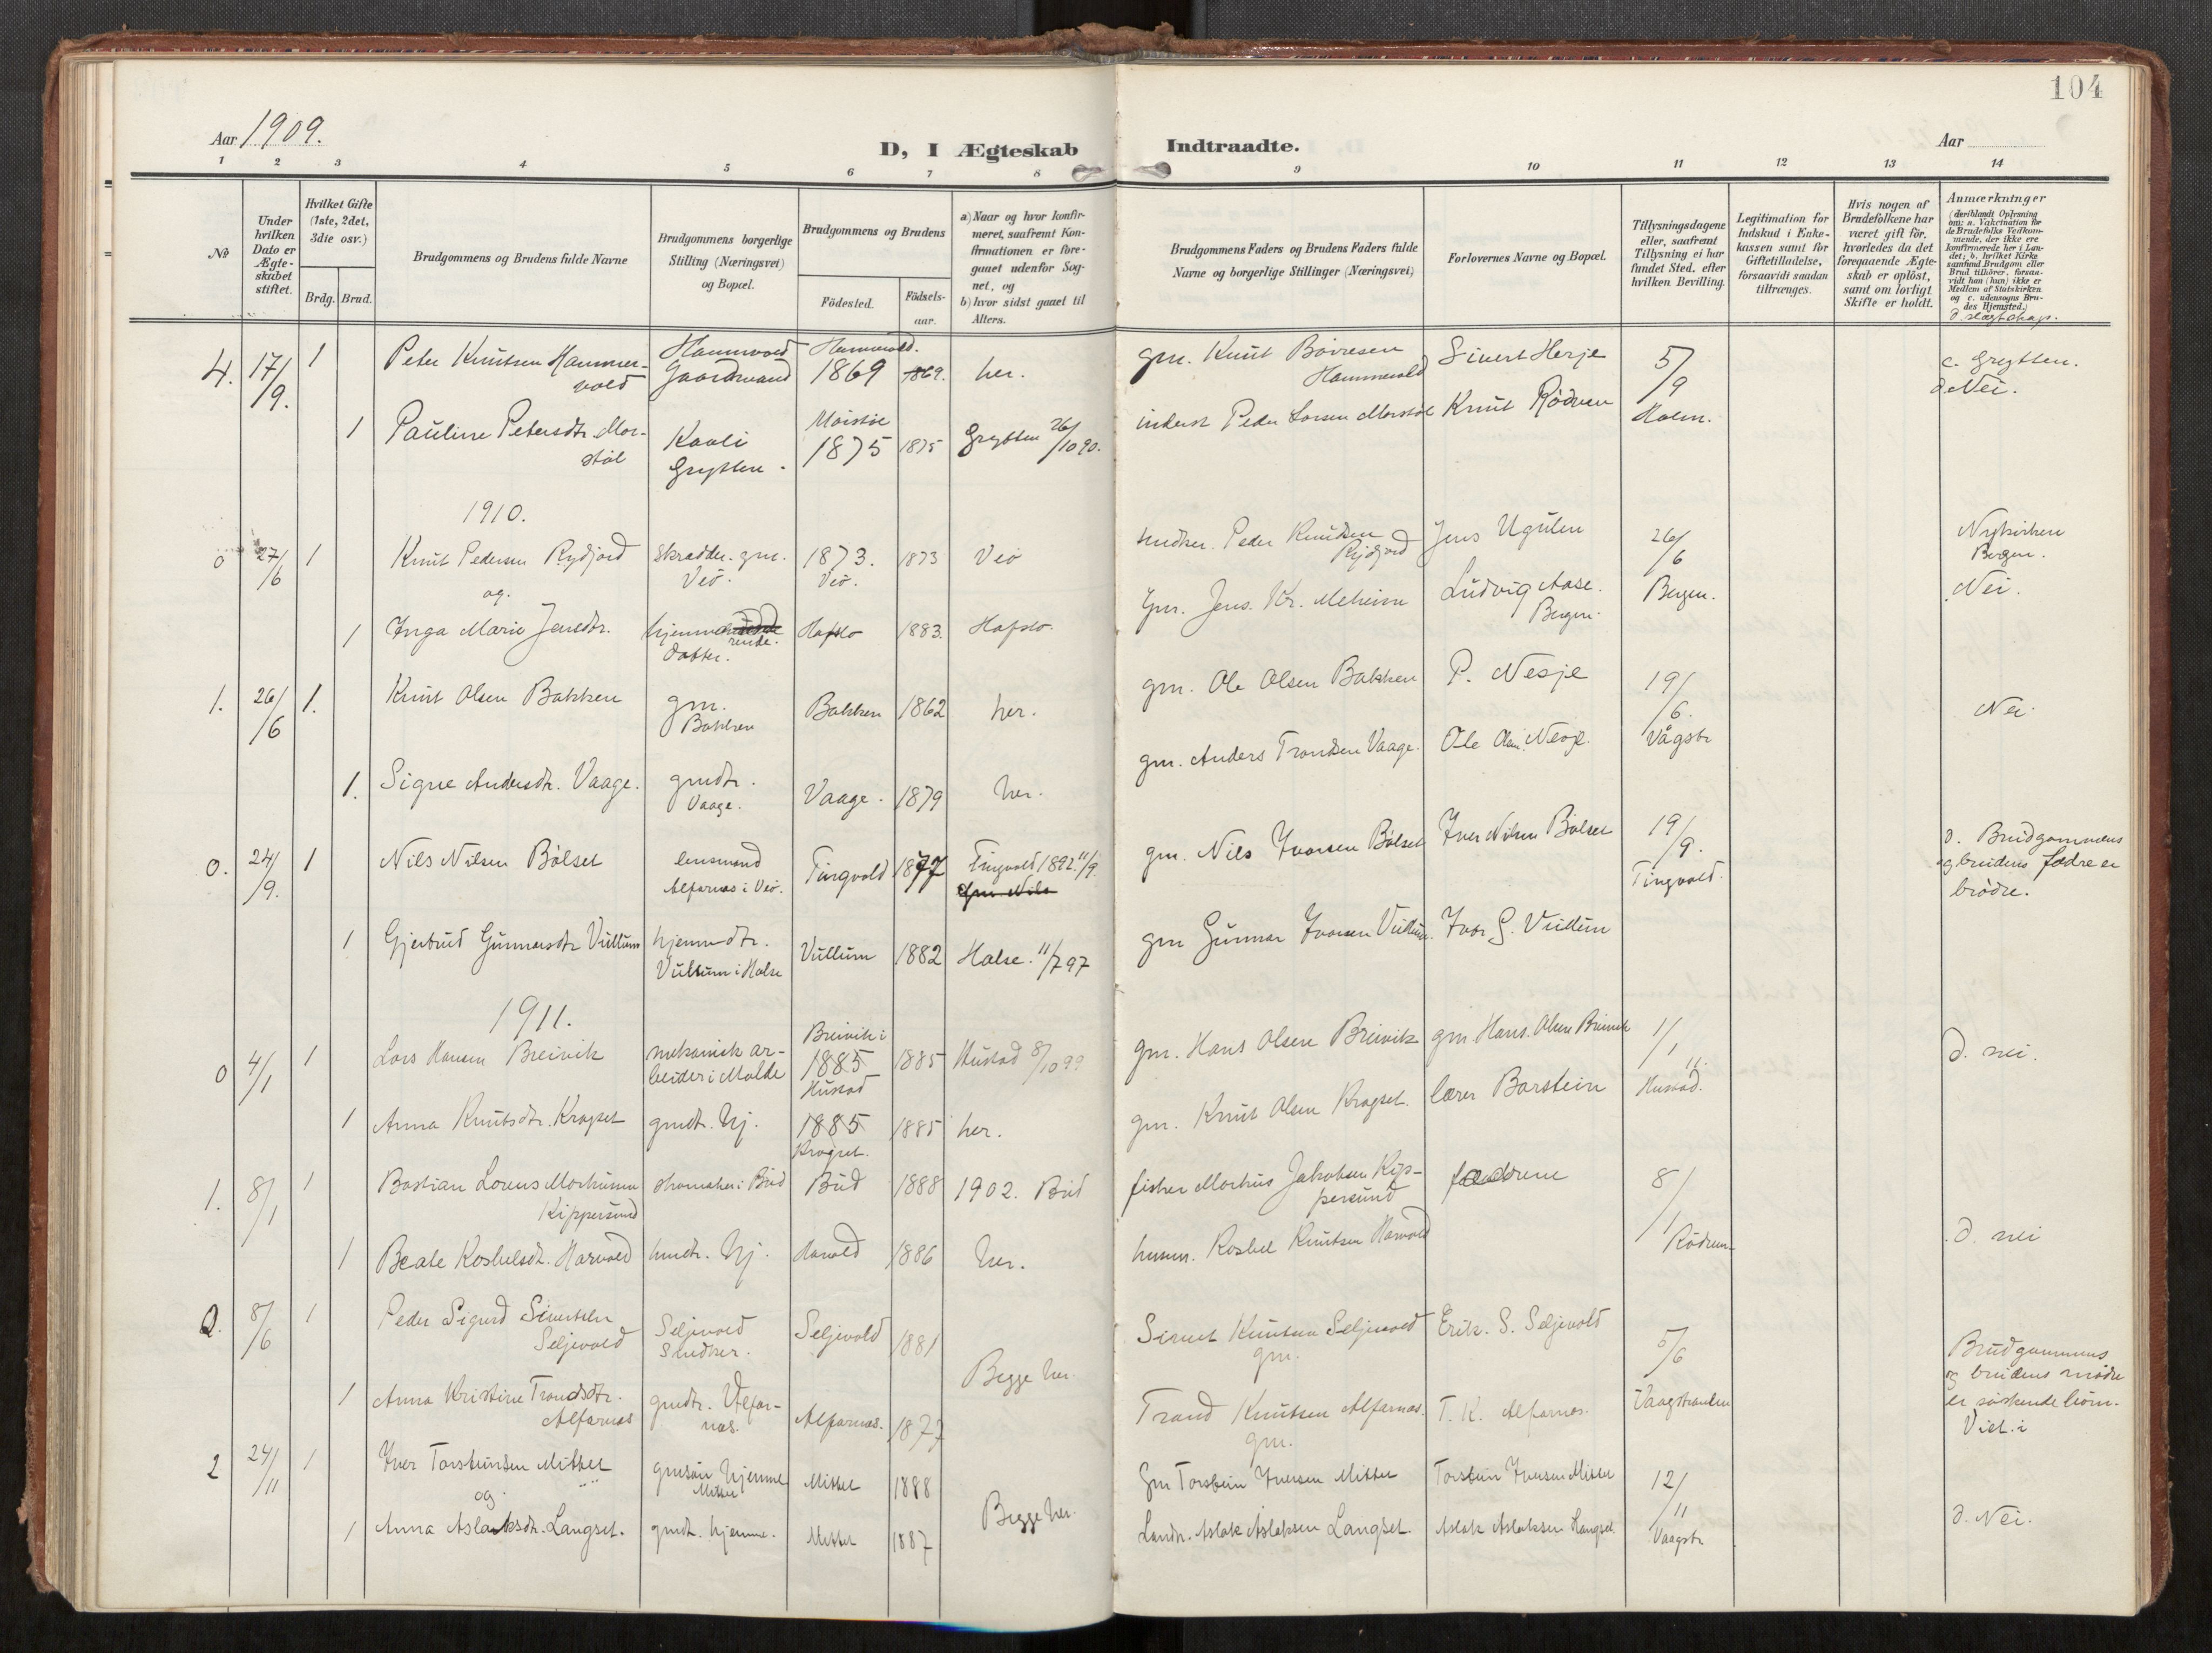 104
Aar 1909.
D, I Ægteskab Indtraadte.
Aar
1 2 3 4 5 6 7 8 9 10 11 12 13 14
No
Under hvilken Dato er Ægte-skabet stiftet.
Hvilket Gifte (1ste, 2det, 3die osv.)
Brdg. Brud.
Brudgommens og Brudens fulde Navne
Brudgommens borgerlige Stilling (Næringsvei) og Bopæl.
Brudgommens og Brudens
Födested.
Födsels-aar.
a) Naar og hvor konfir-meret, saafremt Kon-firmationen er fore-gaaet udenfor Sog-net, og
b) hvor sidst gaaet til Alters.
Brudgommens Faders og Brudens Faders fulde Navne og borgerlige Stillinger (Næringsvei)
Forlovernes Navne og Bopæl.
Tillysningsdagene eller, saafremt Tillysning ei har fundet Sted, efter hvilken Bevilling.
Legitimation for Indskud i Enke-kassen samt for Giftetilladelse, forsaavidt saadan tiltrænges.
Hvis nogen af Brudefolkene har været gift för, hvorledes da det foregaaende Ægte-skab er oplöst, samt om lovligt Skifte er holdt.
Anmærkninger
(deriblandt Oplysning om: a. Vakcination for de Brudefolks Vedkom-mende, der ikke ere konfirmerede her i Lan-det; b. hvilket Kirke-samfund Brudgom eller Brud tilhörer, forsaa-vidt han (hun) ikke er Medlem af Statskirken og c. udensogns Bru-des Hjemsted.)
d. slægtskap.
4. 17/9. 1 Peter Knutsen Hammer-vold Hammervold Gaardmand Hammervold. 1869 1869. her. gm. Knut Hammervold Sivert Herje 5/9 c. Grytten. d. Nei.
1 Pauline Petersdtr. Mor-stöl Kavli Grytten. 1875 1875 Grytten 26/10 90. inderst Peder Larsen Morstöl Knut Rödven Holm.
1910.
0 27/6 1 Knut Pedersen Rydjord skrædder. gm. Veö. 1873. Veö. 1873 Veö snedker. Peder Knudsen Rydjord Jens Ugulen 26/6 Nykirken Bergen.
og.
1 Inga Marie Jensdtr. hjemmeværende. datter. Hafslo 1883. Hafslo. Gm. Jens. Kr. Melheim Ludvig Aase. Bergen. Bergen. Nei.
1. 26/6 1. Knut Olsen Bakken gm. Bakken Bakken 1862 her. gm. Ole Olsen Bakken P. Nesje 19/6. Nei.
1. Signe Andersdtr. Vaage. gmdtr. Vaage. Vaage. 1879 her. gm. Anders Trondsen Vaage. Ole Vågstr
0. 24/9. 1 Nils Nilsen Bölset lensmand Alfarnes i Veö. Tingvold 1877 Tingvold 1892 11/9. gm. Nils Ivarsen Bölset Iver Nilsen Bölset 19/9. Tingvold. d. Brudgommens og brudens fædre er brödre.
1 Gjertrud Gunnarsdtr Vullum hjemmedtr. Vullum i Halse Vullum 1882 Halse. 11/7 97 gm Gunnar Ivarsen Vullum. Ivar G. Vullum
1911.
0 4/1 1 Lars Hansen Breivik mekanisk ar-beider i Molde Breivik i 1885 Hustad 1885 Hustad 8/10 99 gm. Hans Olsen Breivik gm. Hans. Olsen Breivik 1/1 11. d. nei.
1 Anna Knutsdtr. Kragset gmdtr. hj. 1885 Kragset. 1885 her. gm. Knut Olsen Kragset. lærer Barstein Hustad.
1. 8/1 1 Bastian Lorens Kippersund skomaker i Bud Bud 1888 1902. Bud fisker Jakobsen Kip-persund fædrene 8/1
1 Beate Harvold hmdtr. hj. Harvold 1886 her. husm. Knutsen Harvold Rödven d. nei
2. 8/6 1 Peder Sigurd Sivertsen Seljevold Seljevold Snedker. Seljevold 1881 Sivert Knutsen Seljevold gm. Erik. S. Seljevold 5/6 Brudgommens og brudens mödre er söskendebörn. Viet i
Begge her.
1 Anna Kristine Trondsdtr. Alfarnæs gmdtr. Alfarnæs. 1877 Trond Knutsen Alfarnæs. gm. T. K. Alfarnæs. Vaagstranden
2 24/11 1 Iver Torsteinsen Mittet gmsön hjemme Mittet Mittet 1888 Gm Torstein Iversen Mittet Torstein Iversen Mittet 12/11
og.
Begge her.
1 Anna Aslaksdtr. Langset. gmdt. hjemme. Mittet 1887 Landh. Aslak Aslaksen Langset. Aslak Aslaksen Langset. Vaagstr d. Nei.